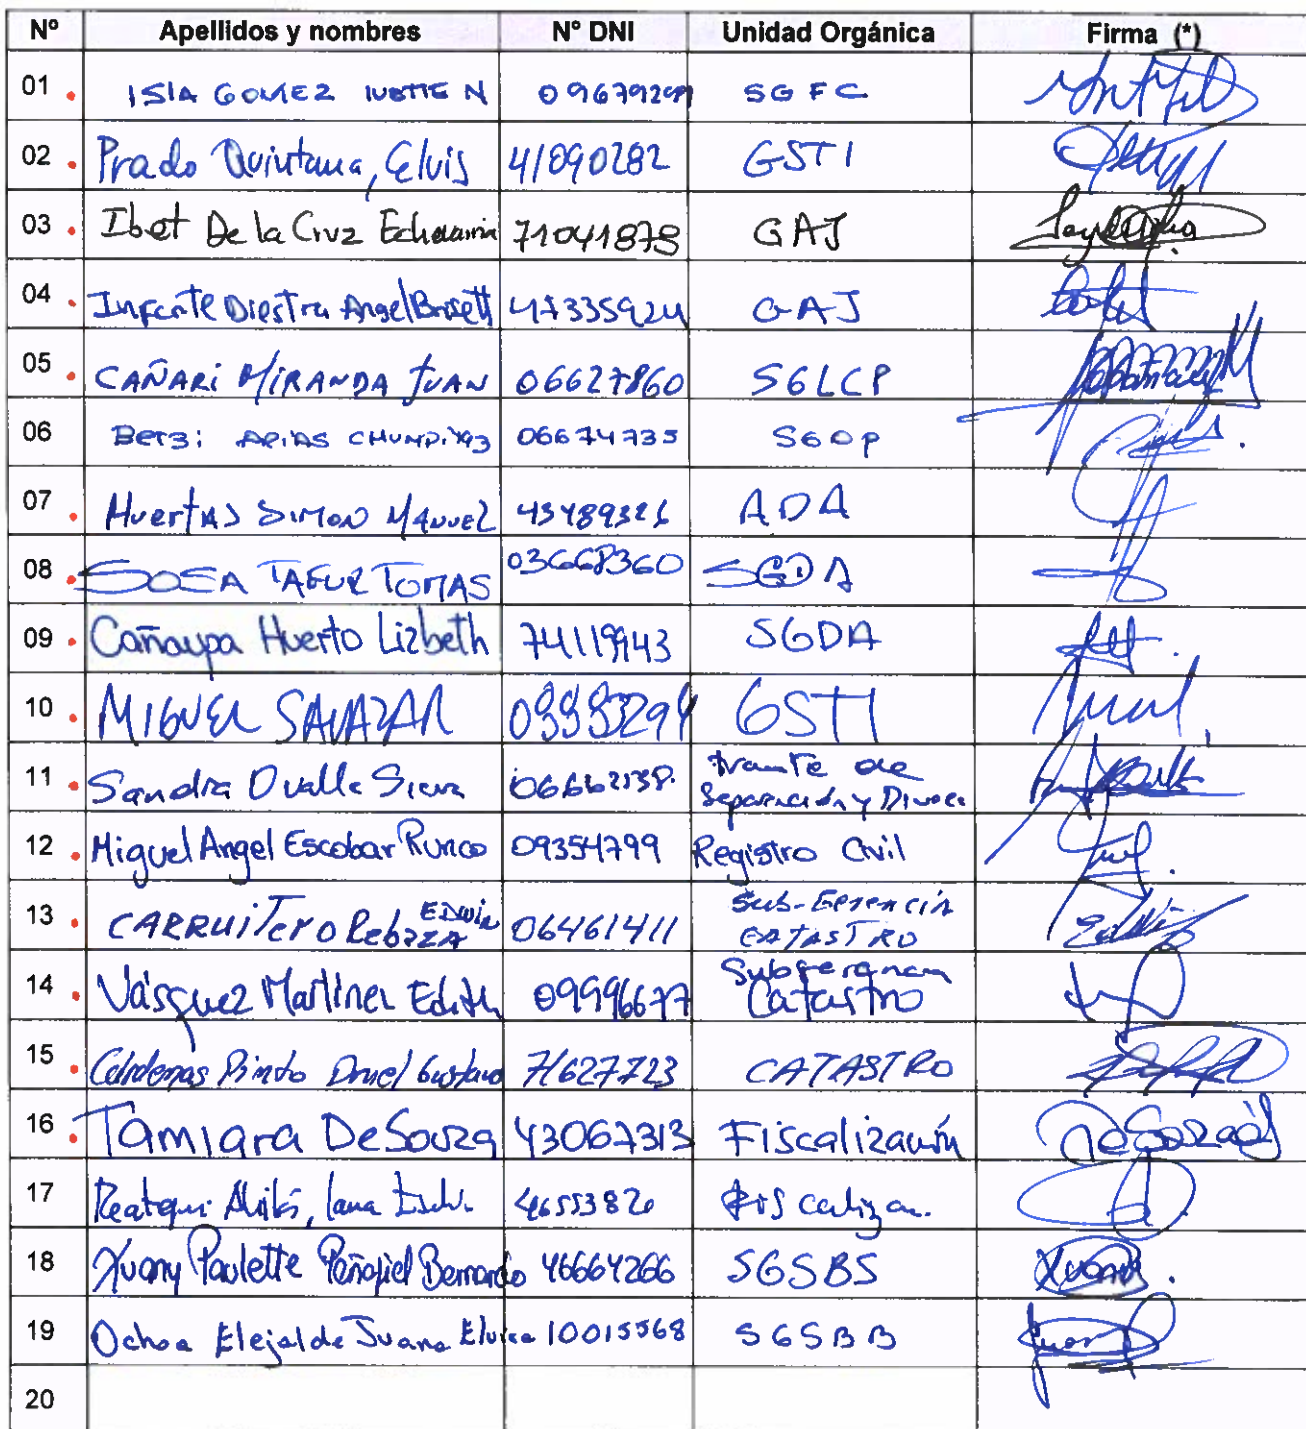 Nº Apellidos y nombres Nº DNI Unidad Orgánica Firma (*)
01 ISIA GOMEZ IVETTE N 09679299 SGFC
02 Prado Quintana, Elvis 41090282 GSTI
03 Ibet De la Cruz Echevarria 71041878 GAJ
04 Infante Diestra Angel Brisett 47335924 GAJ
05 CAÑARi MIRANDA JUAN 06627860 SGLCP
06 Betzi ARIAS 06674735 SGOP
07 HuertAS SIMON MANUEL 43489326 ADA
08 SOSA TAFUR TOMAS 03668360 SGDA
09 Cañaupa Huerto Lizbeth 74119943 SGDA
10 MIGUEL SALAZAR GSTI
11 Sandra Ovalle Sierra 06662138 tramite de
Separación y Divorc
12 Miguel Angel Escobar Runco 09354799 Registro Civil
13 CARRUiTerO RebaZA EDWiN 06461411 Sub-Gerencia
CATASTRO
14 Vásquez Martinez Edith 09996677 Subgerencia
Catastro
15 Cárdenas Pinto Gustavo 71627723 CATASTRO
16 Tamiara DeSouza 43067313 Fiscalización
17 Reategui 46553820 Fiscaliza.
18 Xuany Paulette Peñafiel Bernardo 46664266 SGSBS
19 Ochoa Elejalde Juana Elvira 10015568 SGSBB
20